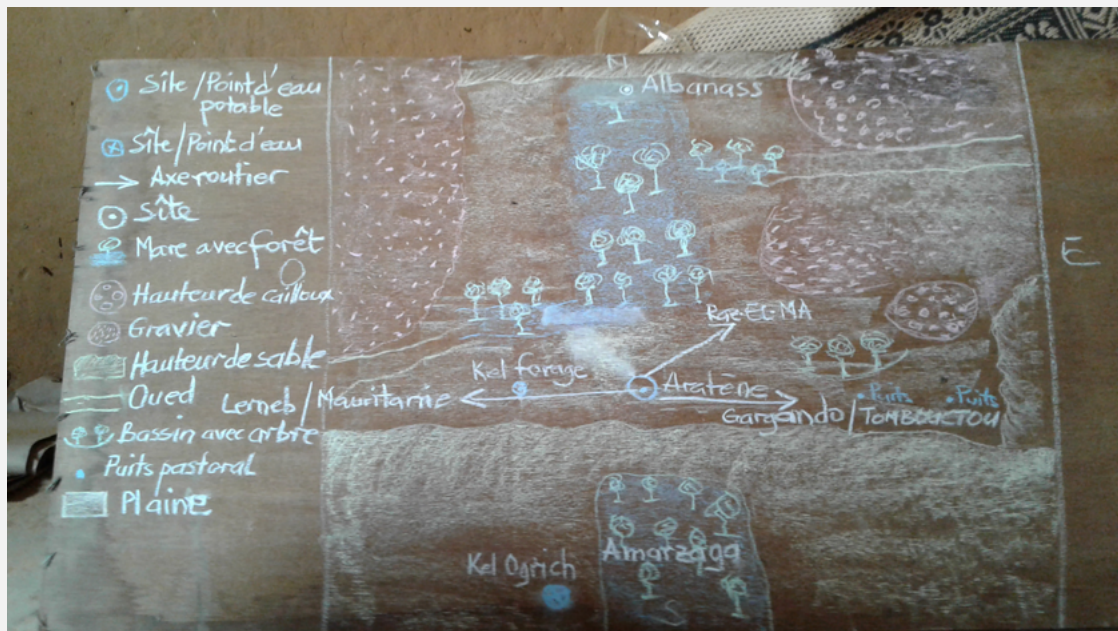 Sîte/Point d'eau
potable
Sîte/Point d'eau
Axe routier
Sîte
Mare avec forêt
Hauteur de cailloux
Gravier
Hauteur de sable
Oued
Bassin avec arbre
Puits pastoral
Plaine
N
Albanass
E
Rge-EGMA
Kel forage
Aratène
Lerneb/Mauritanie
Puits
Puits
Gargando/TOMBOUCTOU
Amarzaga
Kel Ogrich
S